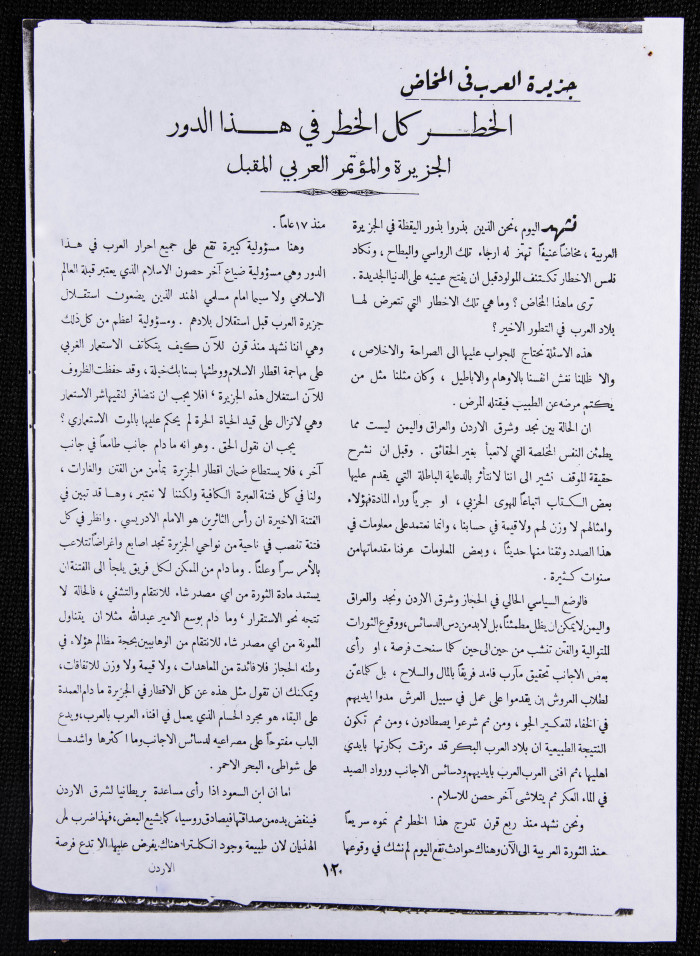 جزيرة العرب في المخاض
الخطر كل الخطر في هذا الدور
الجزيرة والمؤتمر العربي المقبل
نشهد اليوم ،نحن الذين بذروا بذور اليقظة في الجزيرة
العربية ، مخاضاً عنيفاً تهتز له ارجاء تلك الرواسي والبطاح ، ونكاد
نلمس الاخطار تكتنف المولود قبل ان يفتح عينيه على الدنيا الجديدة .
ترى ماهذا المخاض ؟ وما هي تلك الاخطار التي تتعرض لها
بلاد العرب في التطور الاخير ؟
هذه الاسئلة تحتاج للجواب عليها الى الصراحة والاخلاص ،
والا ظللنا نغش انفسنا بالاوهام والاباطيل ، وكان مثلنا مثل من
يكتم مرضه عن الطبيب فيقتله المرض .
ان الحالة بين نجد وشرق الاردن والعراق واليمن ليست مما
يطمئن النفس المخلصة التي لاتعبأ بغير الحقائق . وقبل ان نشرح
حقيقة الموقف نشير الى اننا لانتأثر بالدعاية الباطلة التي يقدم عليها
بعض الكتاب اتباعاً للهوى الحزبي ، او جرياً وراء المادة فهؤلاء
وامثالهم لا وزن لهم ولا قيمة في حسابنا ، وانما نعتمد على معلومات في
هذا الصدد وثقنا منها حديثاً ، وبعض المعلومات عرفنا مقدماتها من
سنوات كثيرة .
فالوضع السياسي الحالي في الحجاز وشرق الاردن ونجد والعراق
واليمن لايمكن ان يظل مطمئناً، بل لابد من دس الدسائس، ووقوع الثورات
المتوالية والفتن تنشب من حين الى حين كما سنحت فرصة ، او رأى
بعض الاجانب تحقيق مآرب فامد فريقاً بالمال والسلاح ، بل كلما عنّ
لطلاب العروش ان يقدموا على عمل في سبيل العرش مدوا ايديهم
في الخفاء لتعكير الجو ، ومن ثم شرعوا يصطادون ، ومن ثم تكون
النتيجة الطبيعية ان بلاد العرب البكر قد مزقت بكارتها بايدي
اهليها ، ثم افنى العرب العرب بايديهم ودسائس الاجانب ورواد الصيد
في الماء العكر ثم يتلاشى آخر حصن للاسلام .
ونحن نشهد منذ ربع قرن تدرج هذا الخطر ثم نموه سريعاً
منذ الثورة العربية الى الآن وهناك حوادث تقع اليوم لم نشك في وقوعها
منذ ١٧ عاماً .
وهنا مسؤولية كبيرة تقع على جميع احرار العرب في هذا
الدور وهي مسؤولية ضياع آخر حصون الاسلام الذي يعتبر قبلة العالم
الاسلامي ولا سيما امام مسلمي الهند الذين يضعون استقلال
جزيرة العرب قبل استقلال بلادهم . ومسؤولية اعظم من كل ذلك
وهي اننا نشهد منذ قرن للآن كيف يتكاتف الاستعمار الغربي
على مهاجمة اقطار الاسلام ووطئها بسنابك خيله ، وقد حفظت الظروف
للآن استقلال هذه الجزيرة ، افلا يجب ان نتضافر لنقيها شر الاستعمار
وهي لاتزال على قيد الحياة الحرة لم يحكم عليها بالموت الاستعماري ؟
يجب ان نقول الحق . وهو انه ما دام جانب طامعاً في جانب
آخر ، فلا يستطاع ضمان اقطار الجزيرة بمأمن من الفتن والغارات ،
ولنا في كل فتنة العبرة الكافية ولكننا لا نعتبر ، وها قد تبين في
الفتنة الاخيرة ان رأس الثائرين هو الامام الادريسي . وانظر في كل
فتنة تنصب في ناحية من نواحي الجزيرة تجد اصابع واغراضاً تتلاعب
بالأمر سراً وعلناً . وما دام من الممكن لكل فريق يلجأ الى الفتنة ان
يستمد مادة الثورة من اي مصدر شاء للانتقام والتشفي ، فالحالة لا
تتجه نحو الاستقرار ، وما دام بوسع الامير عبدالله مثلا ان يتناول
المعونة من اي مصدر شاء للانتقام من الوهابيين بحجة مظالم هؤلاء في
وطنه الحجاز فلا فائدة من المعاهدات ، ولا قيمة ولا وزن للاتفاقات،
ويمكنك ان تقول مثل هذه عن كل الاقطار في الجزيرة ما دام العمدة
على البقاء هو مجرد الحسام الذي يعمل في افناء العرب بالعرب، ويدع
الباب مفتوحاً على مصراعيه لدسائس الاجانب وما اكثرها واشدها
على شواطىء البحر الاحمر .
اما ان ابن السعود اذا رأى مساعدة بريطانيا لشرق الاردن
فينفض يده من صداقتها فيصادق روسيا، كما يشيع البعض، فهذا ضرب من
الهذيان لان طبيعة وجود انكلترا هناك يفرض عليها الا تدع فرصة
الاردن
١٢٠